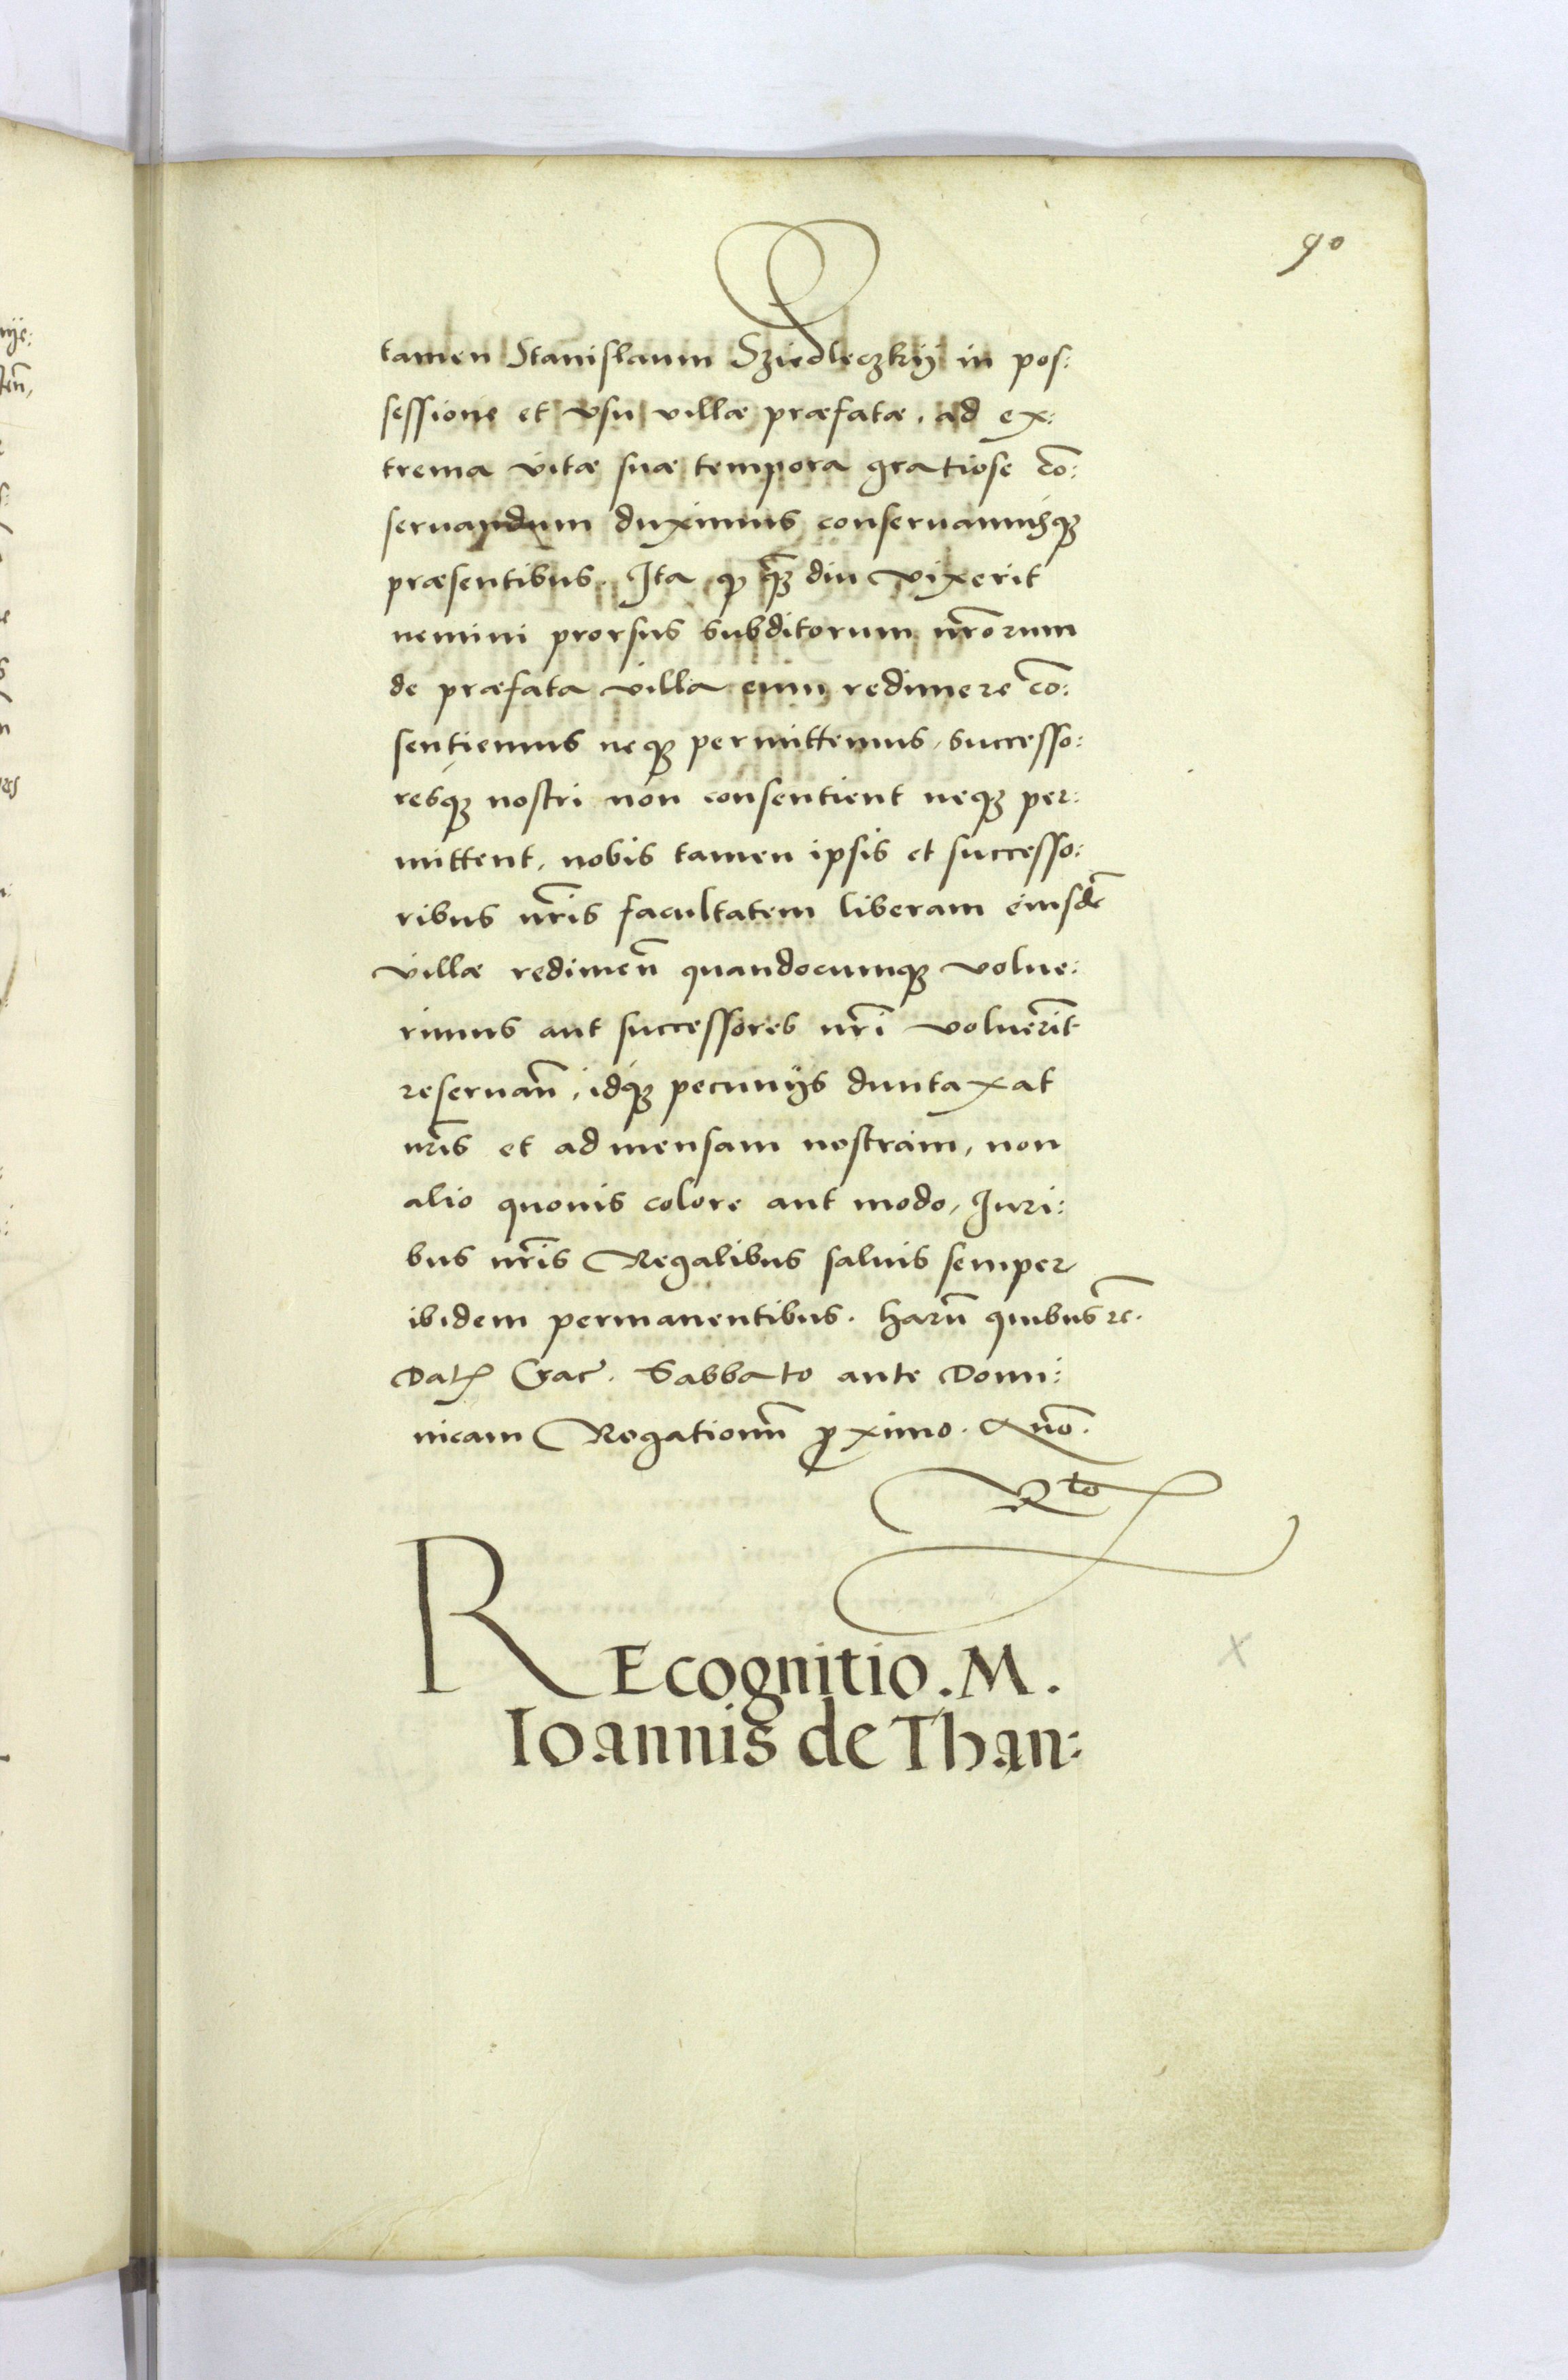 90
tamen Stanislaum Sziedleczkij in pos:
sessione et vsu villæ præfatæ, ad ex:
trema vitæ suæ tempora gratiose cō:
seruandum duximus conseruamusq3
præsentibus. Ita q̃ q̃3 diu vixerit
nemini prorsus subditorum nr̃orum
de præfata villa eum redimere cō:
sentiemus neq3 permittemus, successo:
resq3 nostri non consentient neq3 per:
mittent, nobis tamen ipsis et successo:
ribus nr̃is facultatem liberam eiusdē
villæ redimen̄ quandocumq3 volue:
rimus aut successores nr̃i voluerīt
reseruan̄, idq3 pecunijs duntaxat
nr̃is et ad mensam nostram, non
alio quouis colore aut modo, Juri:
bus nr̃is Regalibus saluis semper
ibidem permanentibus. Harū quibus rē.
Datȝ Crac̄. Sabbato ante Domi:
nicam Rogationū ꝓximo. Año.
Rto
REcognitio. M.
Ioannis de Than: